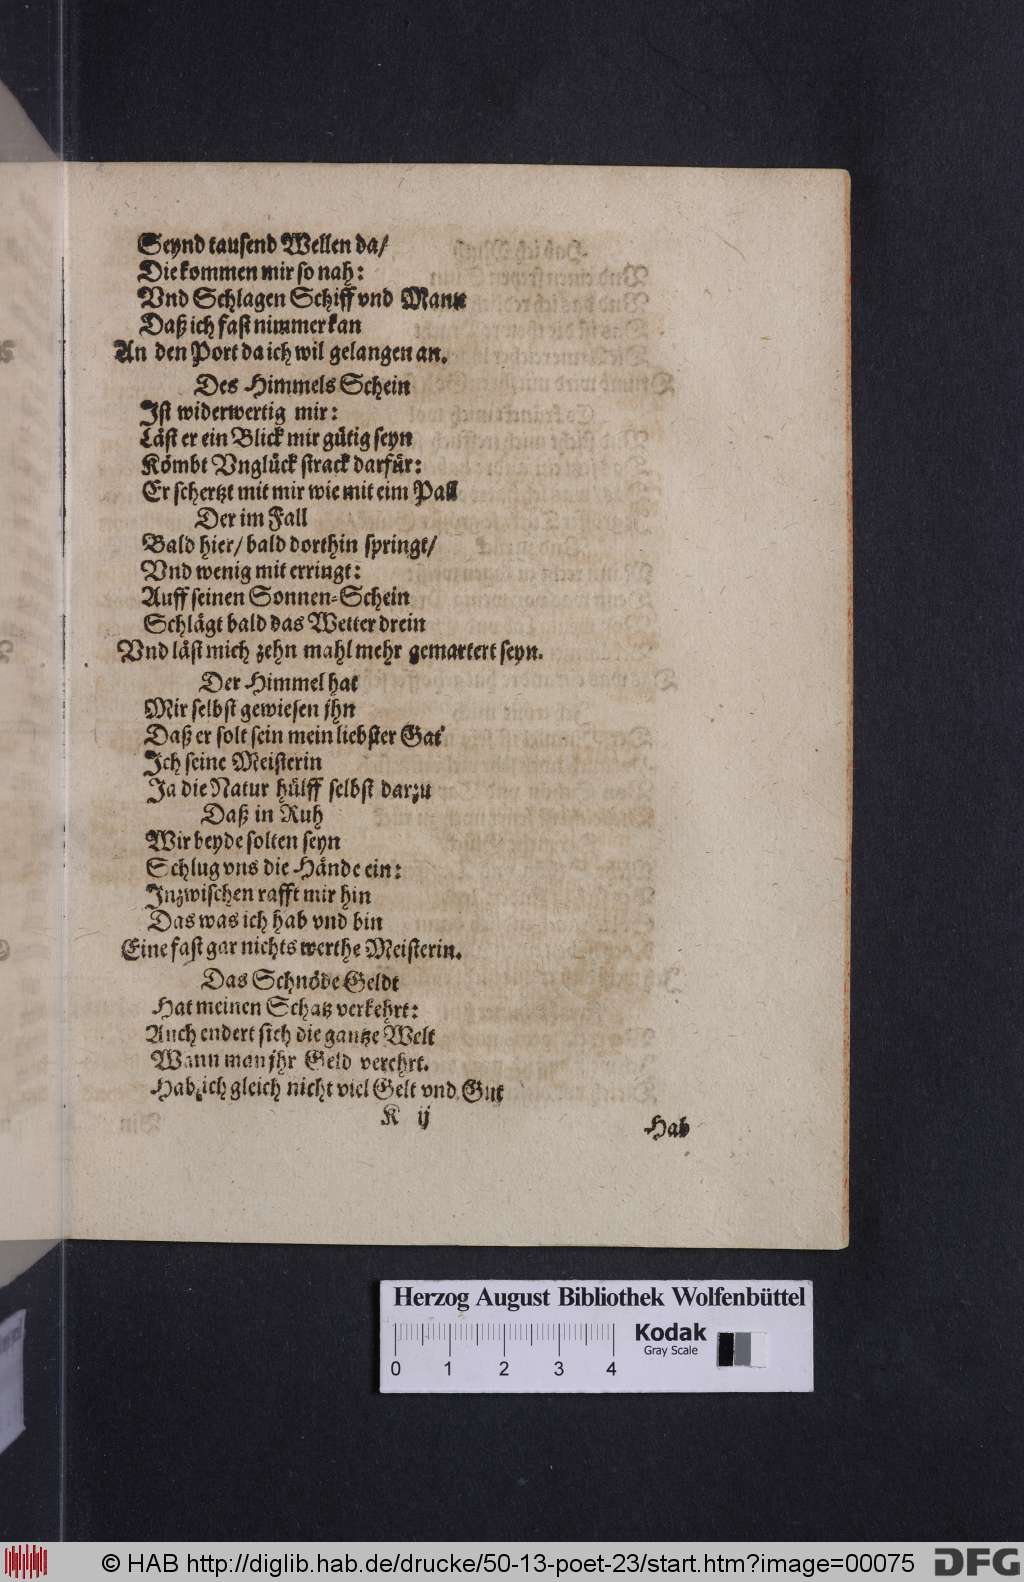 Seynd tausend Wellen da/
Die kommen mir so nah:
Vnd Schlagen Schiff vnd Mann
Daß ich fast nimmer kan
An den Port da ich wil gelangen an.
Des Himmels Schein
Ist widerwertig mir:
Läst er ein Blick mir gütig seyn
Kömbt Vnglück strack darfür:
Er schertzt mit mir wie mit eim Pall
Der im Fall
Bald hier/ bald dorthin springt/
Vnd wenig mit erringt:
Auff seinen Sonnen-Schein
Schlägt bald das Wetter drein
Vnd läst mich zehn mahl mehr gemartert seyn.
Der Himmel hat
Mir selbst gewiesen jhn
Daß er solt sein mein liebster Gat
Ich seine Meisterin
Ja die Natur hülff selbst darzu
Daß in Ruh
Wir beyde solten seyn
Schlug vns die Hände ein:
Inzwischen rafft mir hin
Das was ich hab vnd bin
Eine fast gar nichts werthe Meisterin.
Das Schnöde Geldt
Hat meinen Schatz verkehrt:
Auch endert sich die gantze Welt
Wann man jhr Geld verehrt.
Hab ich gleich nicht viel Gelt vnd Gut
K ij
Hab
Herzog August Bibliothek Wolfenbüttel
Kodak
Gray Scale
0 1 2 3 4
© HAB http://diglib.hab.de/drucke/50-13-poet-23/start.htm?image=00075
DFG